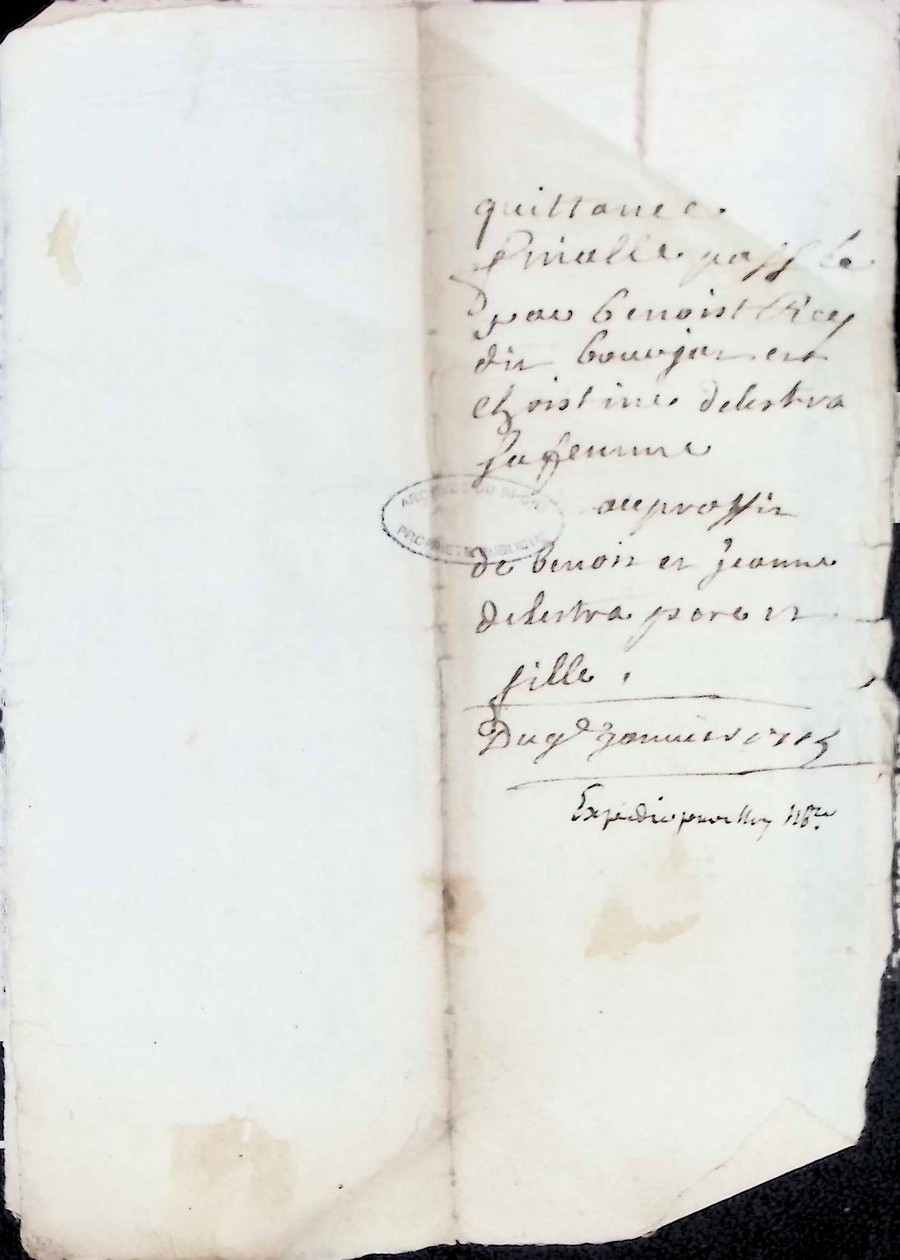 quittance
finalle passée
par benoist Rey
dit bourgui et
christine delestra
sa femme
ARCHIVES DU RHÔNE
PROPRIÉTÉ PUBLIQUE
au proffit
de benoit et jeanne
delestra pere et
fille.
Du 9e Janvier
Expedie pour Rey